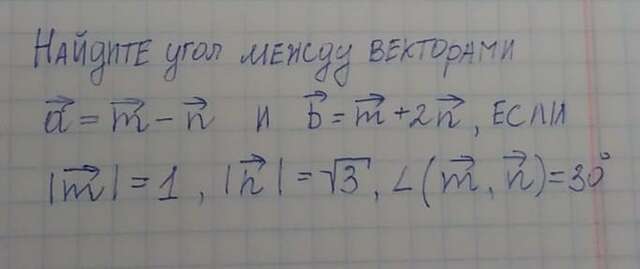 НАЙДИТЕ УГОЛ МЕЖДУ ВЕКТОРАМИ
a⃗ = m⃗ − n⃗ И b⃗ = m⃗ + 2n⃗, ЕСЛИ
|m⃗| = 1, |n⃗| = √3, ∠(m⃗, n⃗) = 30°